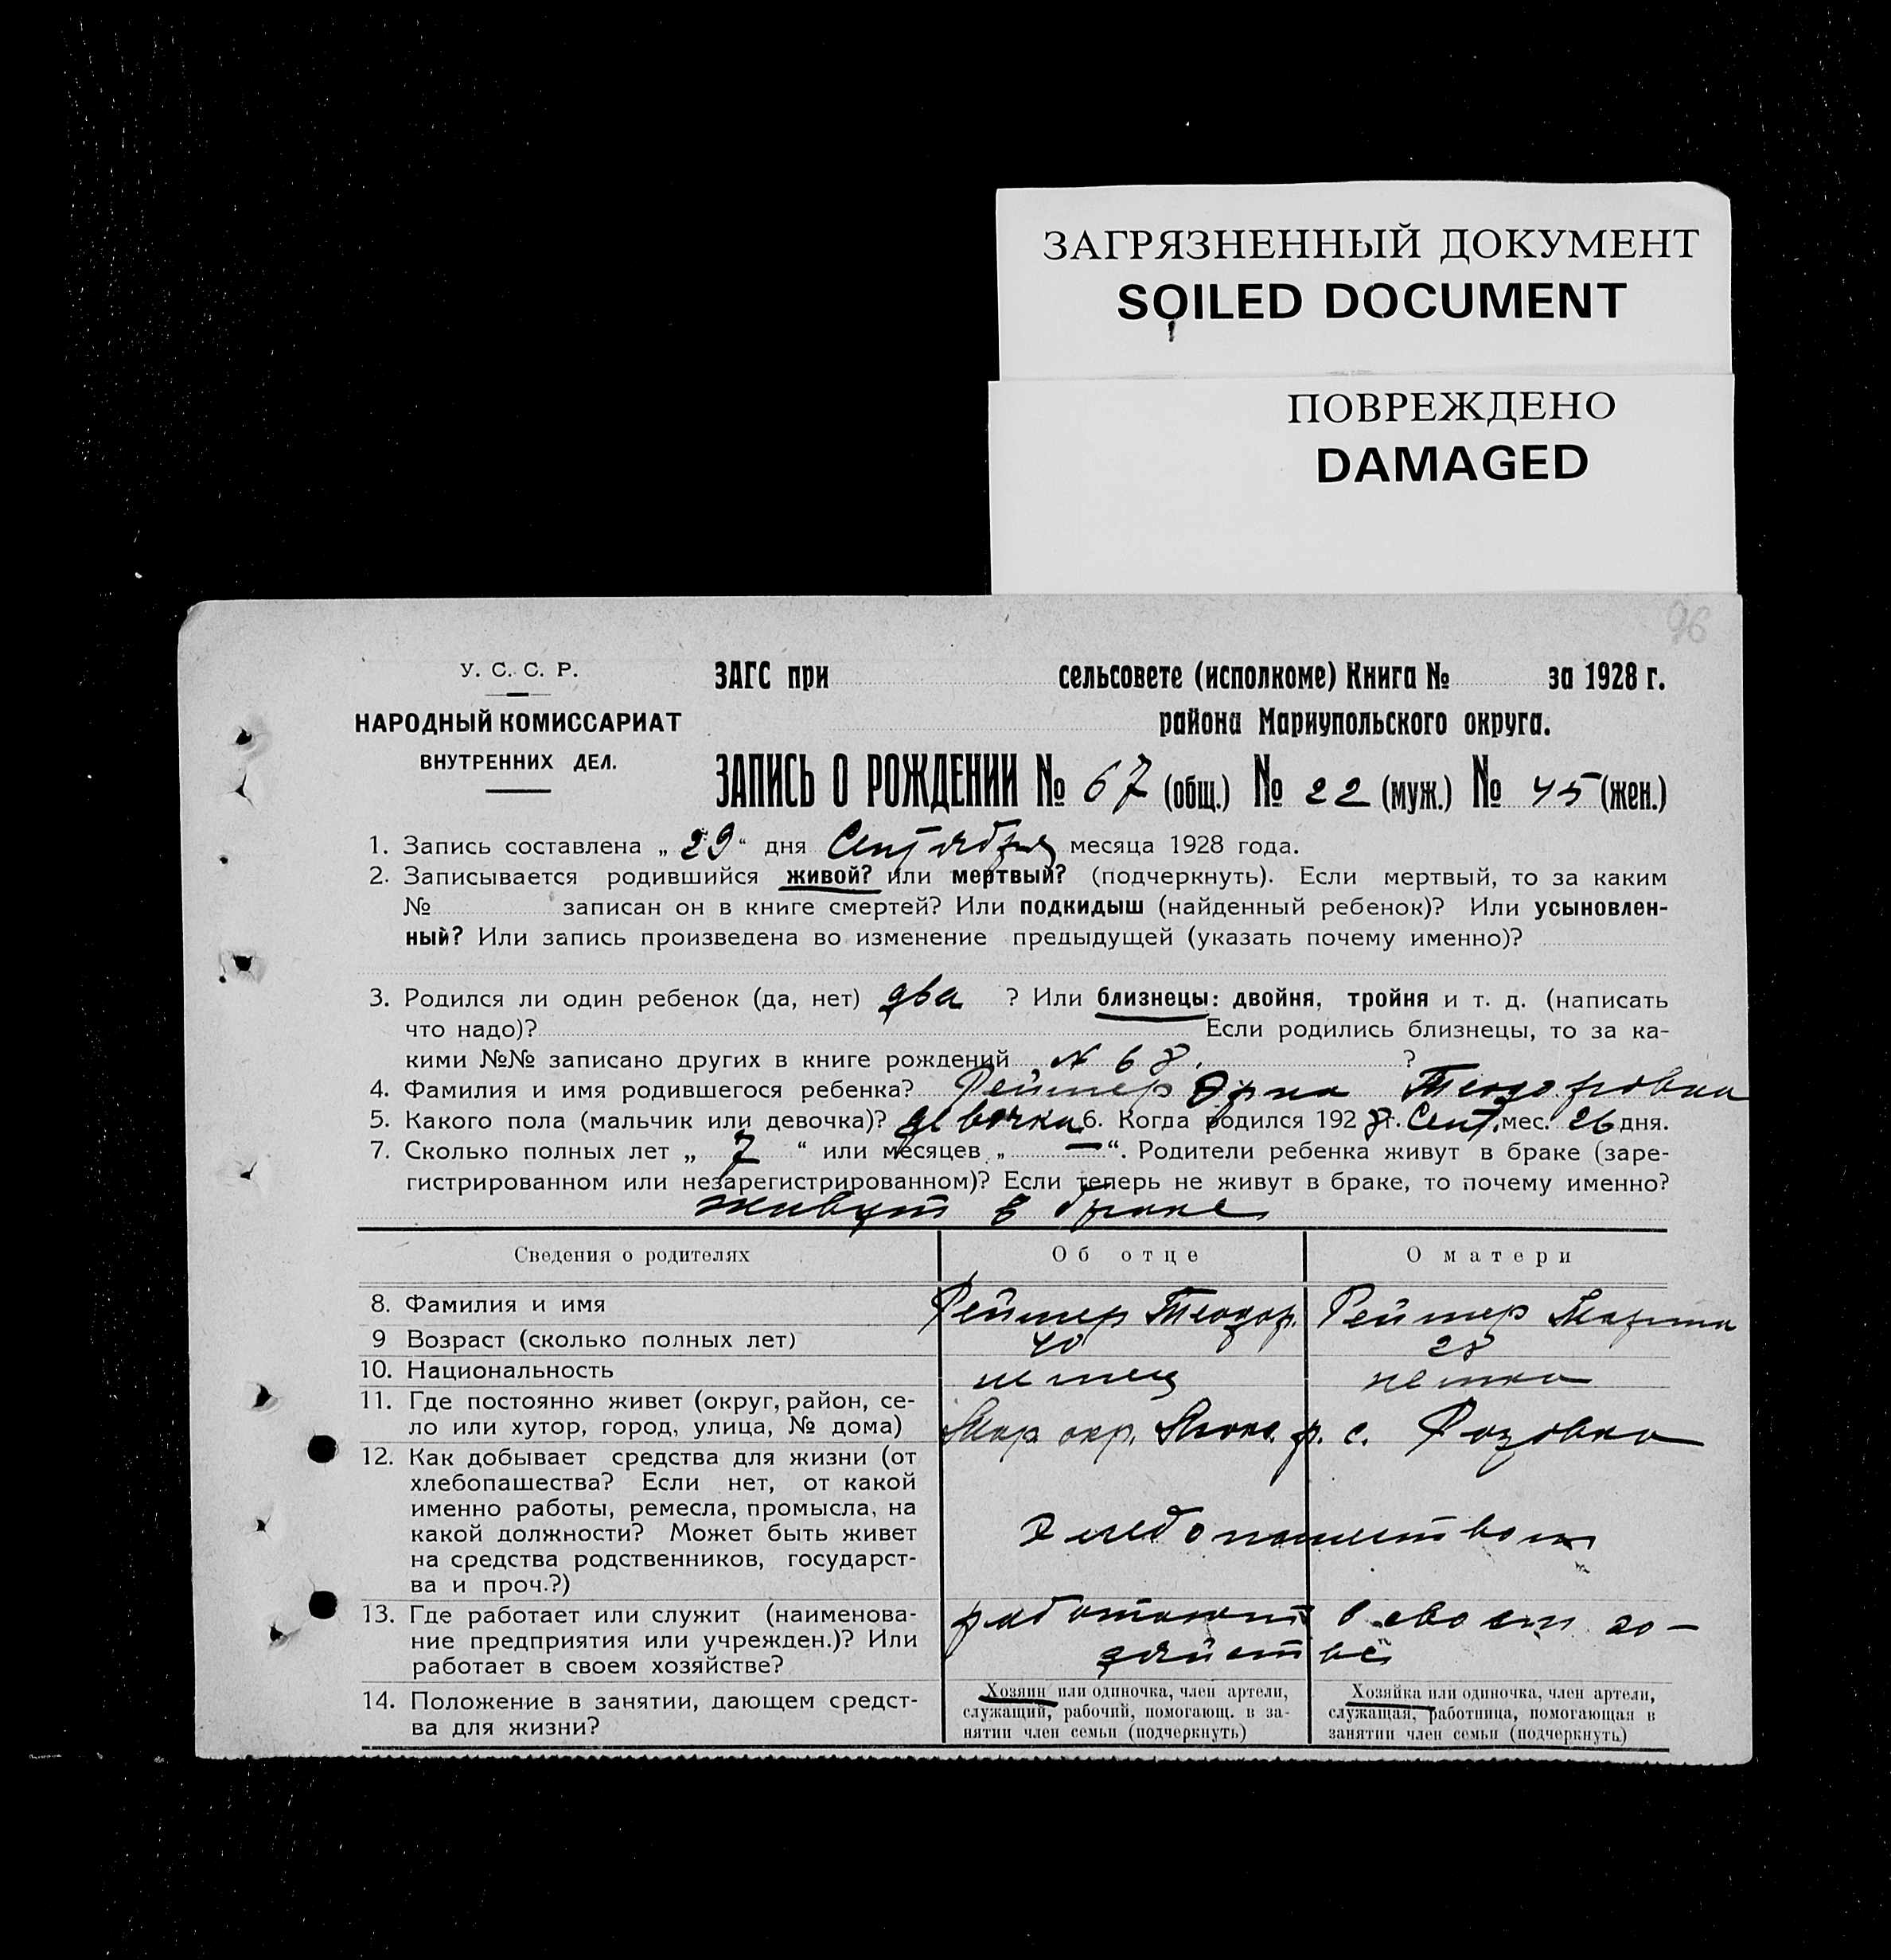 ЗАГРЯЗНЕННЫЙ ДОКУМЕНТ
SOILED DOCUMENT
ПОВРЕЖДЕНО
DAMAGED
96
У. С. С. Р.
НАРОДНЫЙ КОМИССАРИАТ
ВНУТРЕННИХ ДЕЛ.
ЗАГС при сельсовете (исполкоме) Книга № за 1928 г.
района Мариупольского округа.
ЗАПИСЬ О РОЖДЕНИИ № 67 (общ.) № 22 (муж.) № 45 (жен.)
1. Запись составлена „ 29 “ дня Сентября месяца 1928 года.
2. Записывается родившийся живой? или мертвый? (подчеркнуть). Если мертвый, то за каким
№ записан он в книге смертей? Или подкидыш (найденный ребенок)? Или усыновлен-
ный? Или запись произведена во изменение предыдущей (указать почему именно)?
3. Родился ли один ребенок (да, нет) два ? Или близнецы: двойня, тройня и т. д. (написать
что надо)? Если родились близнецы, то за ка-
кими №№ записано других в книге рождений № 68. ?
4. Фамилия и имя родившегося ребенка? Реймер Эрна Теодоровна
5. Какого пола (мальчик или девочка)? девочка 6. Когда родился 1928 г. Сент. мес. 26 дня.
7. Сколько полных лет „ 7 “ или месяцев „ — “. Родители ребенка живут в браке (заре-
гистрированном или незарегистрированном)? Если теперь не живут в браке, то почему именно?
живут в браке
Сведения о родителях Об отце О матери
8. Фамилия и имя Реймер Теодор. Реймер Марта
9 Возраст (сколько полных лет) 40 28
10. Национальность немец немка
11. Где постоянно живет (округ, район, се-
ло или хутор, город, улица, № дома) Мар. окр. р. с. Розовка
12. Как добывает средства для жизни (от
хлебопашества? Если нет, от какой
именно работы, ремесла, промысла, на
какой должности? Может быть живет
на средства родственников, государст-
ва и проч.?)
хлебопашеством
13. Где работает или служит (наименова-
ние предприятия или учрежден.)? Или
работает в своем хозяйстве?
работают в своем хо-
зяйстве
14. Положение в занятии, дающем средст-
ва для жизни?
Хозяин или одиночка, член артели,
служащий, рабочий, помогающ. в за-
нятии член семьи (подчеркнуть)
Хозяйка или одиночка, член артели,
служащая, работница, помогающая в
занятии член семьи (подчеркнуть)